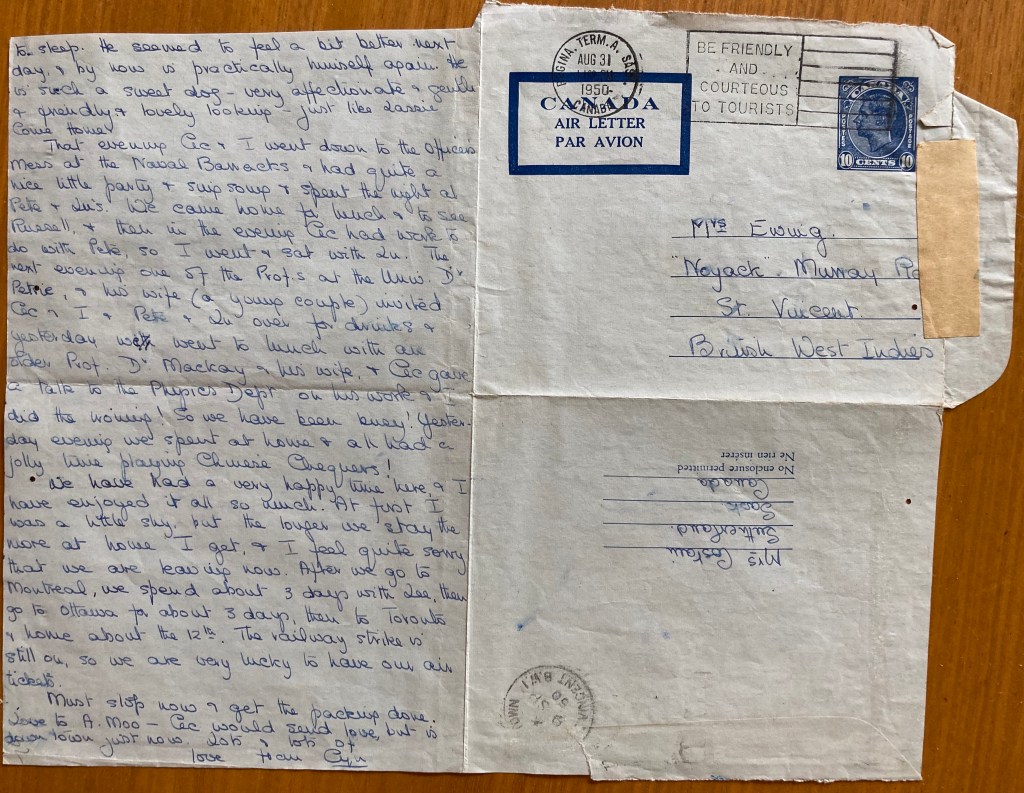 to sleep. He seemed to feel a bit better next
day, & by now is practically himself again. He
is such a sweet dog - very affectionate & gentle
& friendly & lovely looking - just like Lassie
Come Home!
That evening Cec & I went down to the Officers
Mess at the Naval Barracks & had quite a
nice little party & sing song & spent the night at
Pete & Lu's. We came home for lunch & to see
Russell, & then in the evening Cec had work to
do with Pete, so I went & sat with Lu. The
next evening one of the Prof.s at the Univ. Dr
Petrie, & his wife (a young couple) invited
Cec & I & Pete & Lu over for drinks &
yesterday we went to lunch with an
older Prof. Dr Mackay & his wife, & Cec gave
a talk to the Physics Dept on his work & I
did the ironing! So we have been busy! Yester-
day evening we spent at home & all had a
jolly time playing Chinese Chequers!
We have had a very happy time here, & I
have enjoyed it all so much. At first I
was a little shy, but the longer we stay the
more at home I get, & I feel quite sorry
that we are leaving now. After we go to
Montreal, we spend about 3 days with Lee, then
go to Ottawa for about 3 days, then to Toronto
& home about the 12th. The railway strike is
still on, so we are very lucky to have our air
tickets.
Must stop now & get the packing done.
Love to A. Moo - Cec would send love, but is
down town just now. Lots & lots of
love from Cyn
REGINA. TERM. A. SASK.
AUG 31
1950
CANADA
BE FRIENDLY
AND
COURTEOUS
TO TOURISTS
CANADA
AIR LETTER
PAR AVION
CANADA
10 CENTS 10
Mrs Ewing.
"Noyack" Murray
St. Vincent.
British West Indies
No enclosure permitted
Ne rien insérer
Mrs Costain
Sutherland.
Sask
Canada
4
SP
50
VINCENT B.W.I.